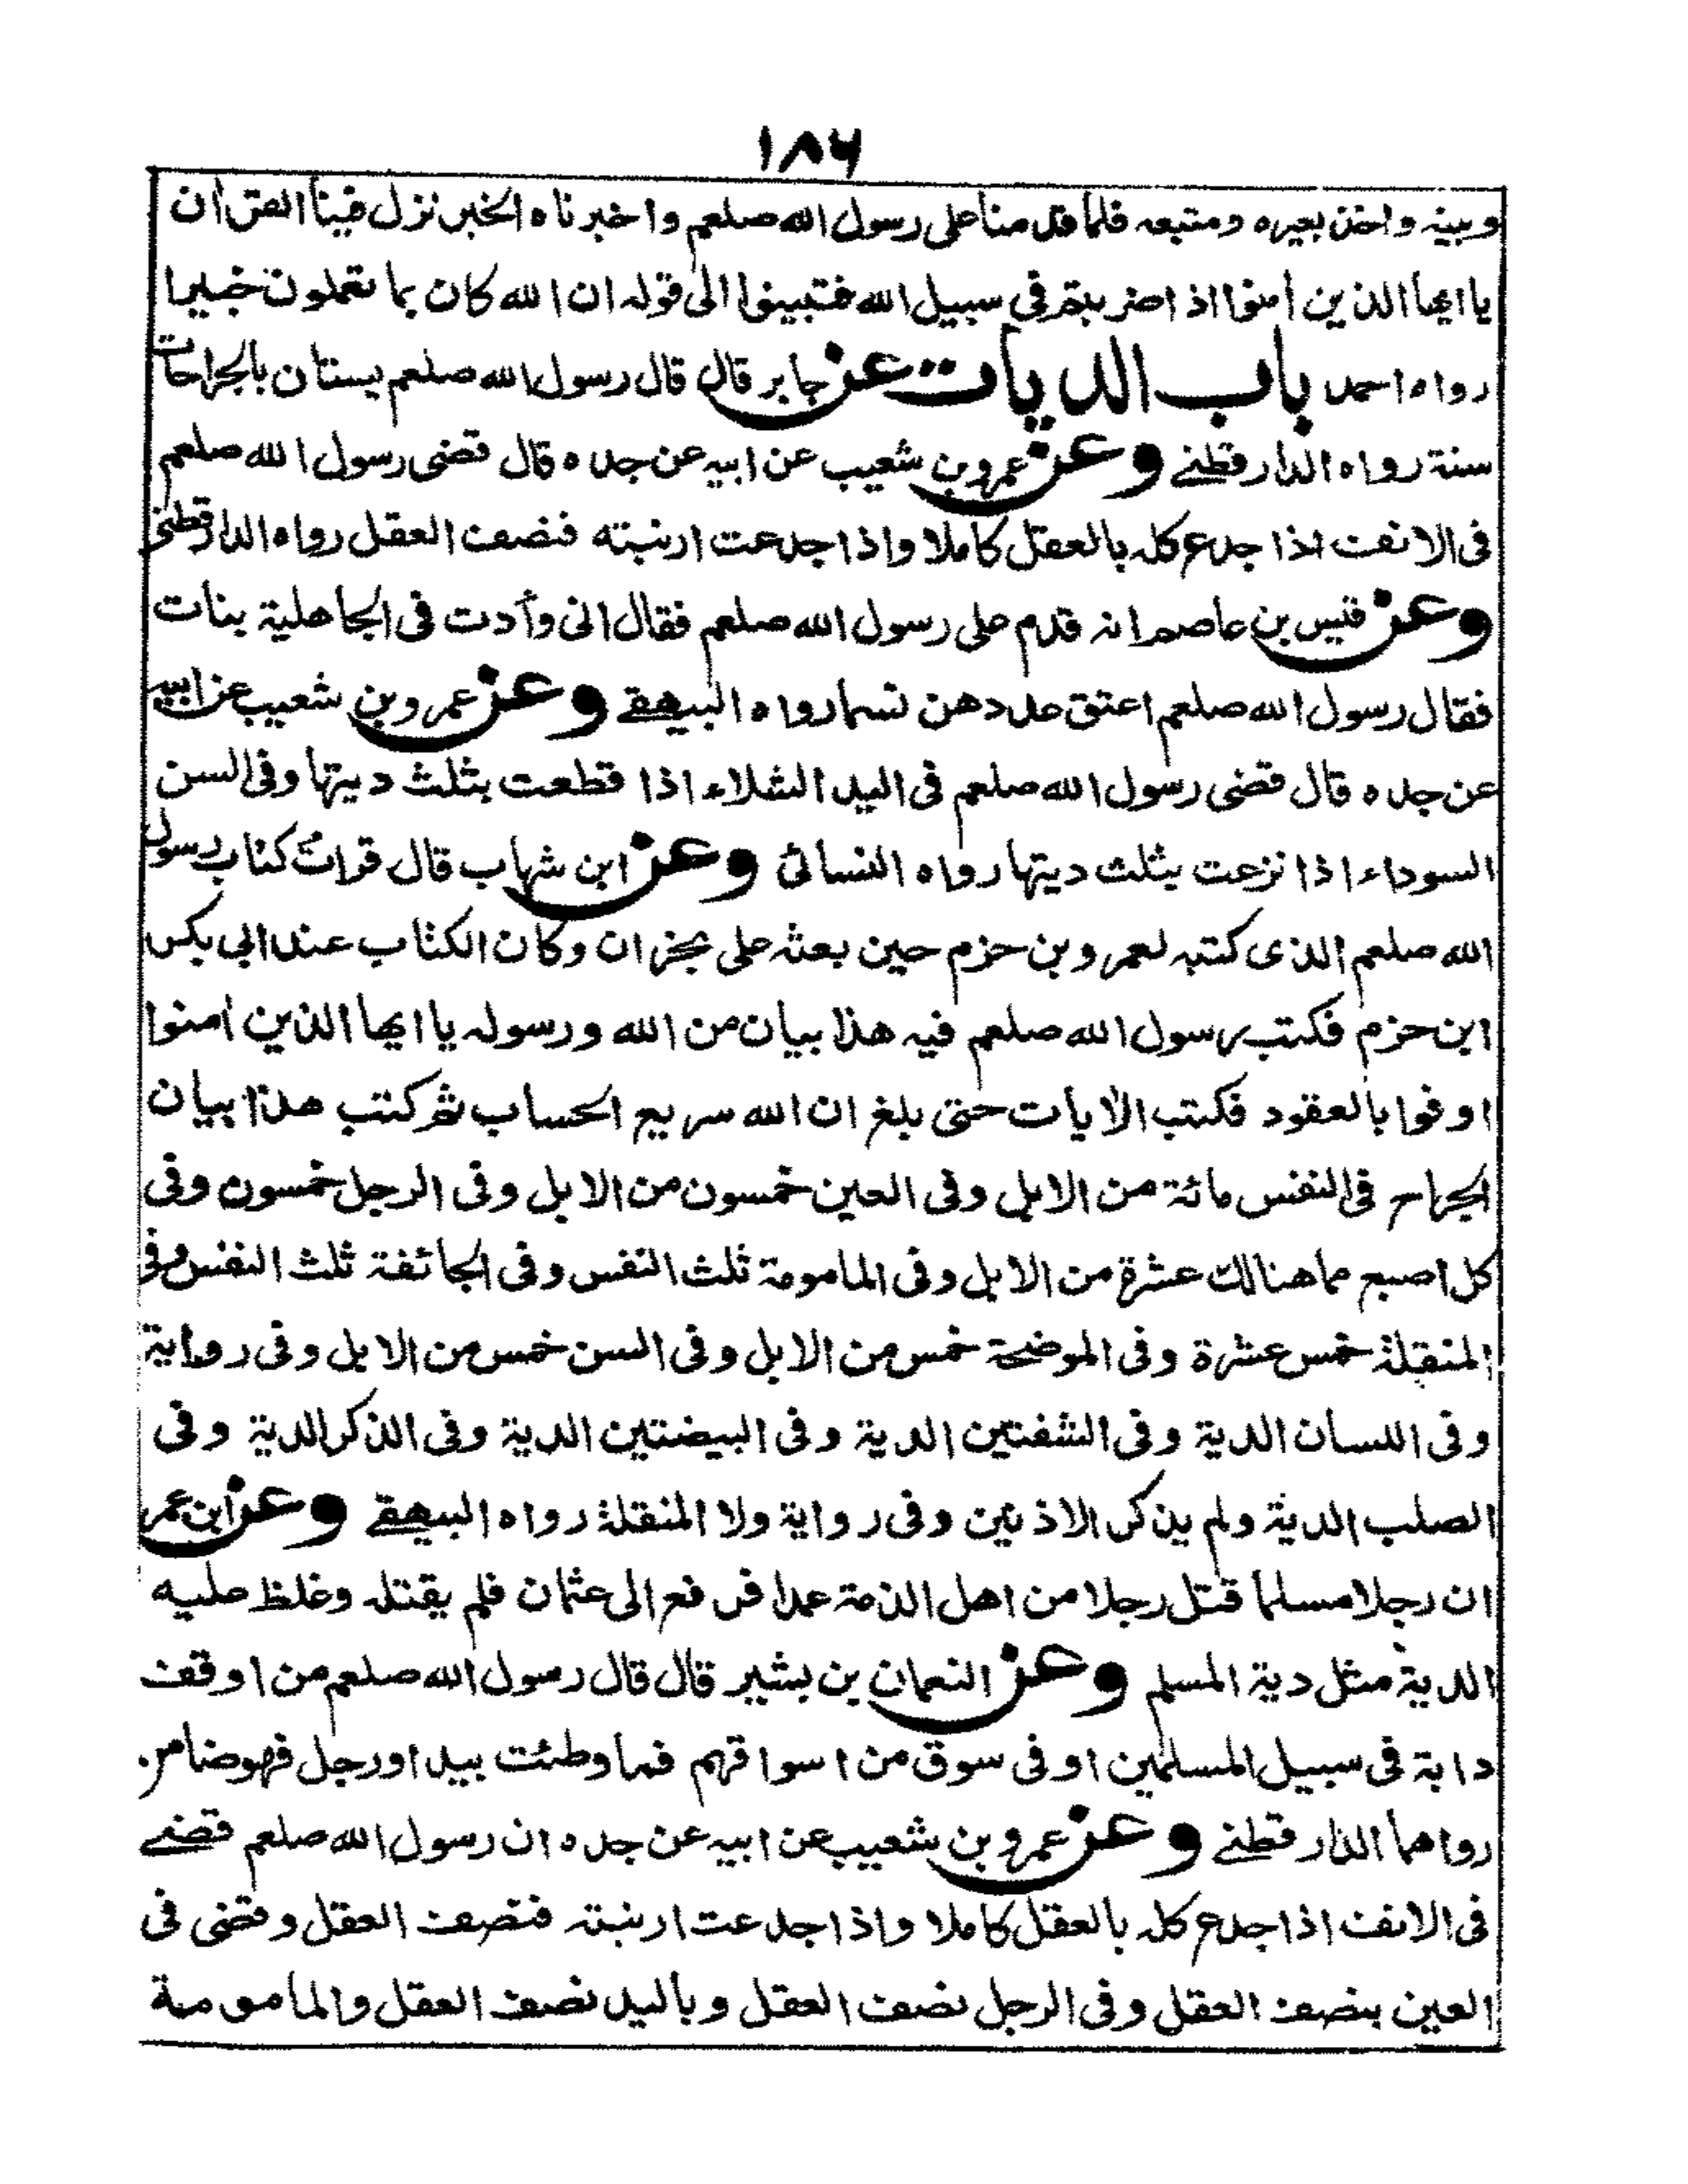 ١٨٦
وبينه واخذ بعيره ومتبعه فلما قدمنا على رسول الله صلعم واخبرناه الخبر نزل فينا القرآن
يا ايها الذين امنوا اذا ضربتم في سبيل الله فتبينوا الى قوله ان الله كان بما تعملون خبيرا
رواه احمد باب الديات عن جابر قال قال رسول الله صلعم يستان بالجراحات
سنة رواه الدارقطني وعن عمرو بن شعيب عن ابيه عن جده قال قضى رسول الله صلعم
في الانف اذا جدع كله بالعقل كاملا واذا جدعت ارنبته فنصف العقل رواه الدارقطني
وعن قيس بن عاصم انه قدم على رسول الله صلعم فقال اني وأدت في الجاهلية بنات
فقال رسول الله صلعم اعتق عددهن نسما رواه البيهقي وعن عمرو بن شعيب عن ابيه
عن جده قال قضى رسول الله صلعم في اليد الشلاء اذا قطعت بثلث ديتها وفي السن
السوداء اذا نزعت بثلث ديتها رواه النسائي وعن ابن شهاب قال قرات كتاب رسول
الله صلعم الذي كتبه لعمرو بن حزم حين بعثه على نجران وكان الكتاب عند ابي بكر
ابن حزم فكتب رسول الله صلعم فيه هذا بيان من الله ورسوله يا ايها الذين امنوا
اوفوا بالعقود فكتب الايات حتى بلغ ان الله سريع الحساب ثم كتب هذا بيان
الجراح في النفس مائة من الابل وفي العين خمسون من الابل وفي الرجل خمسون وفي
كل اصبع مما هنالك عشرة من الابل وفي المامومة ثلث النفس وفي الجائفة ثلث النفس وفي
المنقلة خمس عشرة وفي الموضحة خمس من الابل وفي السن خمس من الابل وفي رواية
وفي اللسان الدية وفي الشفتين الدية وفي البيضتين الدية وفي الذكر الدية وفي
الصلب الدية ولم يذكر الاذنين وفي رواية ولا المنقلة رواه البيهقي وعن ابن عمر
ان رجلا مسلما قتل رجلا من اهل الذمة عمدا فرفع الى عثمان فلم يقتله وغلظ عليه
الدية مثل دية المسلم وعن النعمان بن بشير قال قال رسول الله صلعم من اوقف
دابة في سبيل المسلمين او في سوق من اسواقهم فما وطئت بيد او رجل فهو ضامن
رواهما الدارقطني وعن عمرو بن شعيب عن ابيه عن جده ان رسول الله صلعم قضى
في الانف اذا جدع كله بالعقل كاملا واذا جدعت ارنبته فنصف العقل وقضى في
العين بنصف العقل وفي الرجل نصف العقل وباليد نصف العقل والمامومة